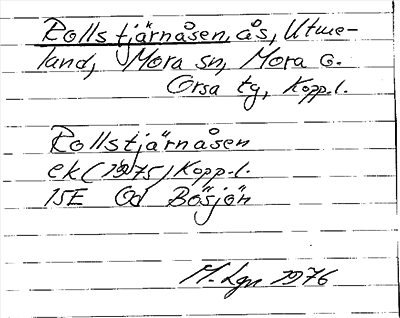 Rollstjärnåsen, ås, Utme-
land, Mora sn, Mora o.
Orsa tg, Kopp.l.
Rollstjärnåsen
ek (1975) Kopp.l.
15E Od Bösjön
M. Lgn 1976